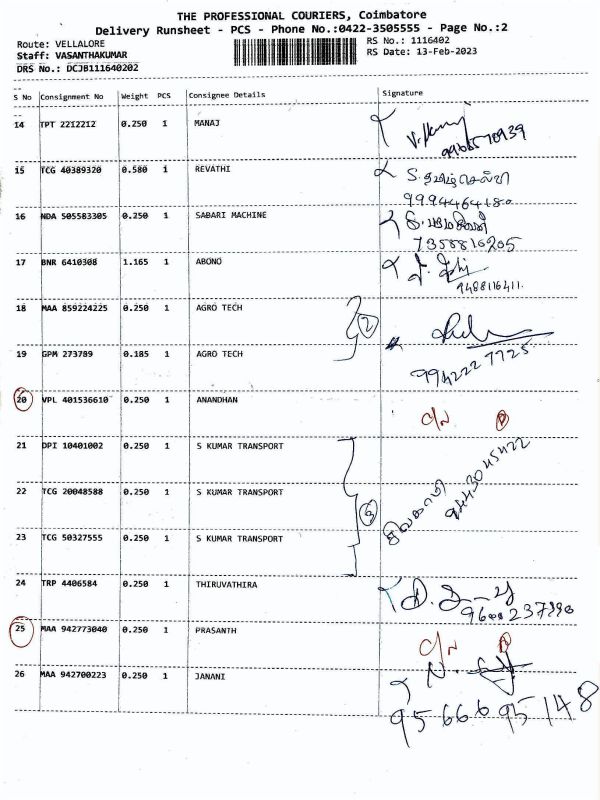 THE PROFESSIONAL COURIERS, Coimbatore
Delivery Runsheet - PCS - Phone No.:0422-3505555 - Page No.:2
Route: VELLALORE
Staff: VASANTHAKUMAR
DRS No.: DCJB111640202
RS No.: 1116402
RS Date: 13-Feb-2023
S No Consignment No Weight PCS Consignee Details Signature
14 TPT 2212212 0.250 1 MANAJ
15 TCG 40389320 0.580 1 REVATHI S. தமிழ் செல்வி
9994464180
16 NDA 505583305 0.250 1 SABARI MACHINE
7358816205
17 BNR 6410308 1.165 1 ABONO
9488116411
18 MAA 859224225 0.250 1 AGRO TECH
2
19 GPM 273789 0.185 1 AGRO TECH
9942227725
20 VPL 401536610 0.250 1 ANANDHAN C/N
21 DPI 10401002 0.250 1 S KUMAR TRANSPORT
22 TCG 20048588 0.250 1 S KUMAR TRANSPORT
3 9443045422
23 TCG 50327555 0.250 1 S KUMAR TRANSPORT
24 TRP 4406584 0.250 1 THIRUVATHIRA
25 MAA 942773040 0.250 1 PRASANTH C/N
26 MAA 942700223 0.250 1 JANANI
9566695148